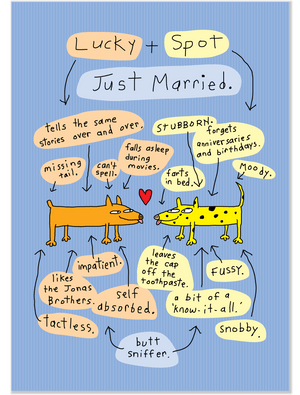 Lucky + Spot
Just Married.
tells the same
stories over and over.
STUBBORN.
forgets
anniversaries
and birthdays.
missing
tail.
can't
spell.
falls asleep
during
movies.
farts
in bed.
moody.
impatient.
likes
the Jonas
Brothers.
self
absorbed.
tactless.
leaves
the cap
off the
toothpaste.
FUSSY.
a bit of a
'know-it-all.'
snobby.
butt
sniffer.